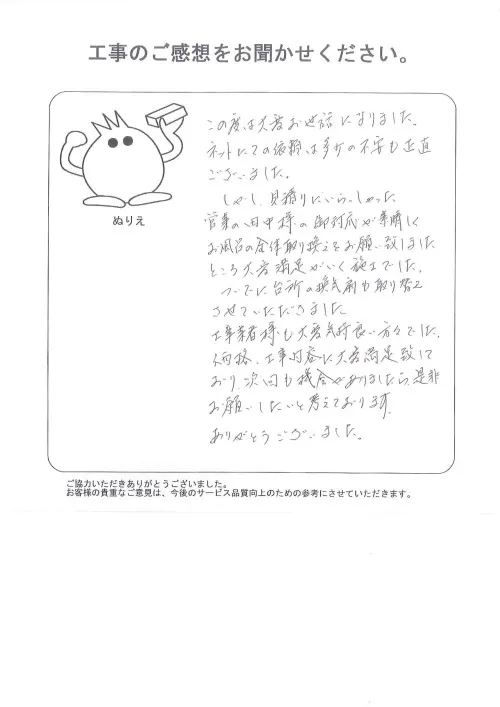 工事のご感想をお聞かせください。
ぬりえ
この度は大変お世話になりました。
ネットにての依頼は多少の不安も正直
ございました。
しかし、見積りにいらしゃった
営業の田中様の御対応が素晴しく
お風呂の全体取り換えをお願い致しました
ところ大変満足がいく施工でした。
ついでに台所の換気扇も取り替え
させていただきました
工事業者様も大変気持良い方々でした。
価格、工事内容に大変満足致して
おり、次回も機会がありましたら、是非
お願いしたいと考えております。
ありがとうございました。
ご協力いただきありがとうございました。
お客様の貴重なご意見は、今後のサービス品質向上のための参考にさせていただきます。